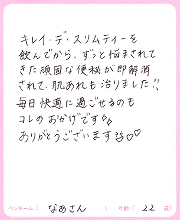 キレイ・デ・スリムティーを
飲んでから、ずっと悩まされて
きた頑固な便秘が即解消
されて、肌あれも治りました!!
毎日快適に過ごせるのも
コレのおかげです
ありがとうございます♡♡
ペンネーム( なあさん ) 年齢( 22 歳)